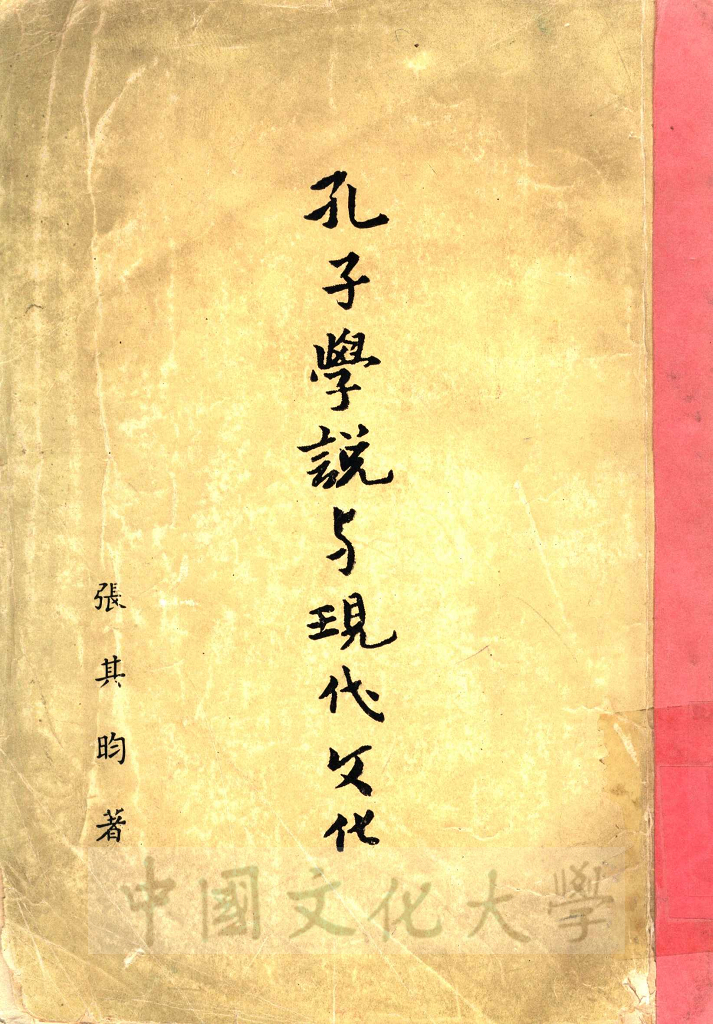 孔子學説与現代文化
張其昀著
中國文化大學